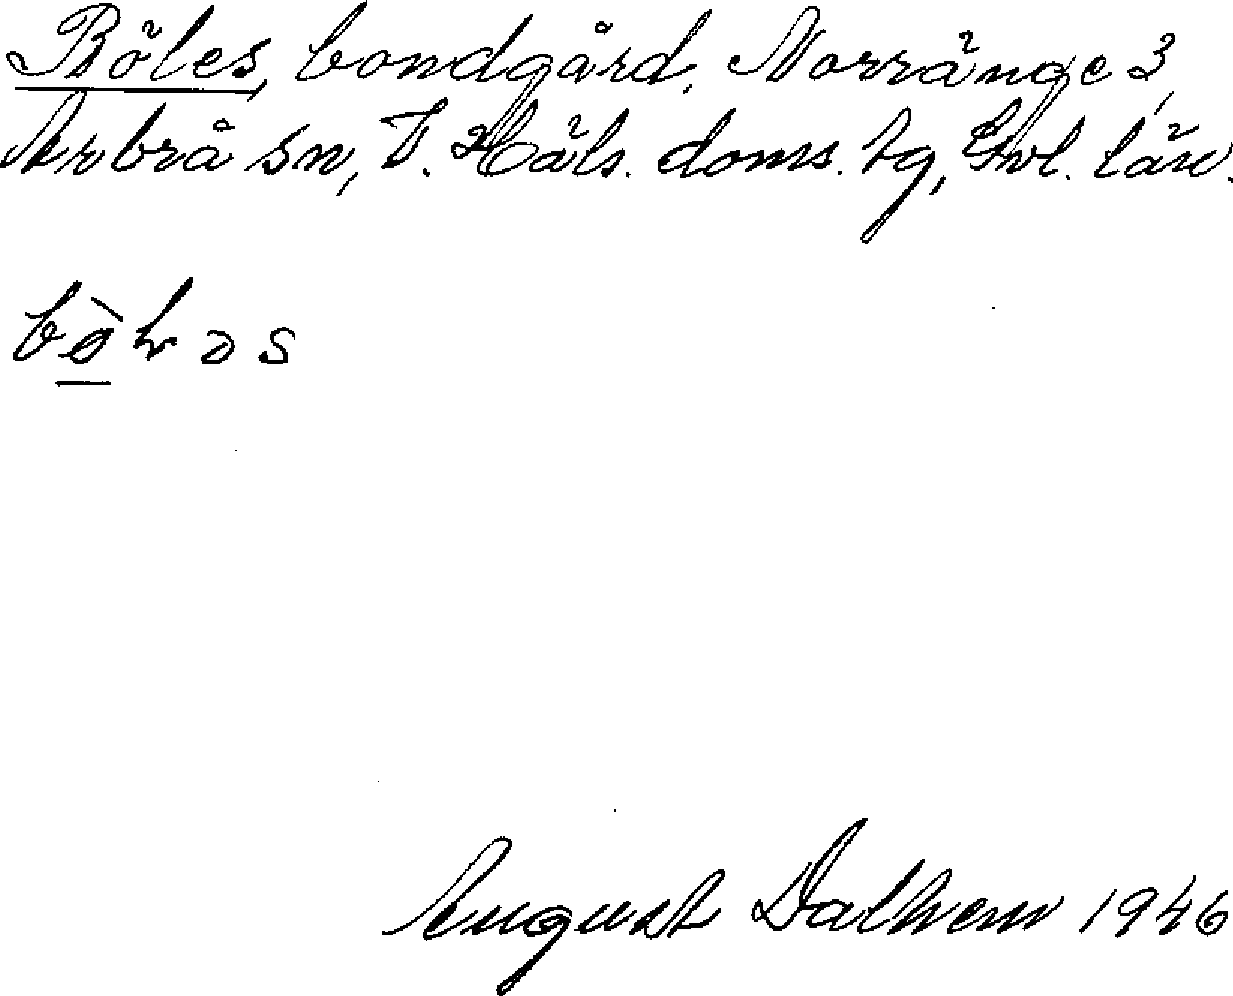 Böles, bondgård, Norränge 3,
Arbrå sn, V. Häls. doms. tg, Gvl. län.
bə̀ɫəs
August Dalhem 1946